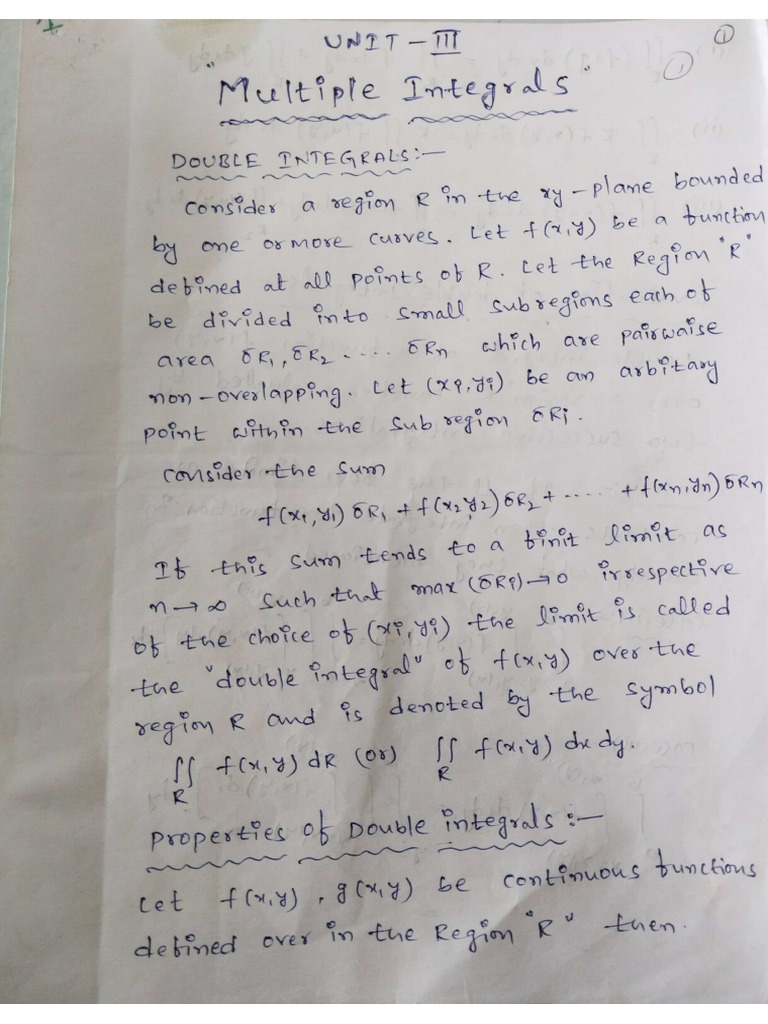 ①
UNIT - III
①
"Multiple Integrals"
DOUBLE INTEGRALS:-
Consider a region R in the xy-plane bounded
by one or more curves. Let f(x,y) be a function
defined at all points of R. Let the Region "R"
be divided into small subregions each of
area δR₁, δR₂ .... δRn which are pairwaise
non-overlapping. Let (xi,yi) be an arbitary
point within the sub region δRi.
Consider the sum
f(x₁,y₁) δR₁ + f(x₂y₂) δR₂ + ..... + f(xn,yn) δRn
If this sum tends to a finit limit as
n→∞ such that max (δRi)→0 irrespective
of the choice of (xi,yi) the limit is called
the "double integral" of f(x,y) over the
region R and is denoted by the symbol
∬ f(x,y) dR (or) ∬ f(x,y) dx dy.
R R
Properties of Double integrals:-
Let f(x,y), g(x,y) be continuous functions
defined over in the Region "R" then.